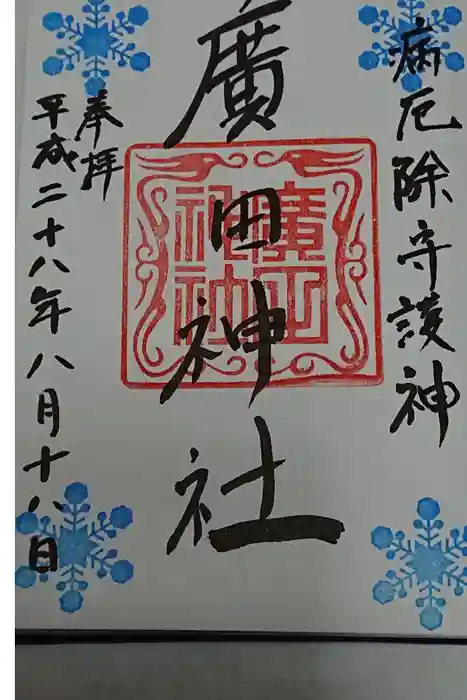 病厄除守護神
廣田神社
奉拝
平成二十八年八月十八日